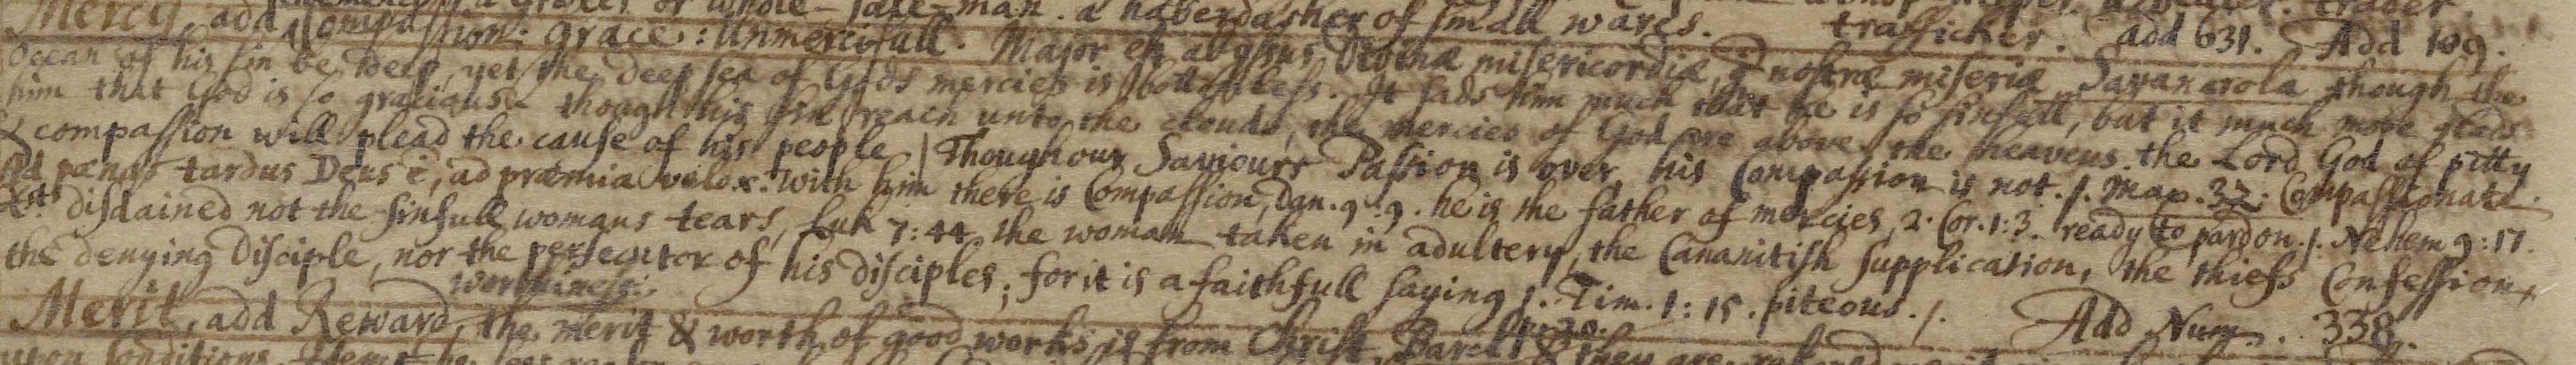 a grocer or whole-sale-man. a haberdasher of small wares. trafficker. add 631. Add 109.
Mercy, add Compassion: grace: Unmercifull. Major est abyssus Divinæ misericordiæ, quam nostræ miseriæ. Savanarola though the
Ocean of his sin be deep, yet the deep sea of Gods mercies is bottomless. It sads him much that he is so sinfull, but it much more glads
him that God is so gracious: though his sin reach unto the clouds, the mercies of God are above the heavens. the Lord God of pitty
& compassion will plead the cause of his people / Though our Saviours Passion is over, his Compassion is not. /. Map. 32. Compassionate.
Ad pænas tardus Deus ē, ad præmia velox. With him there is Compassion, Dan. 9:9. he is the father of mercies, 2. Cor. 1:3. ready to pardon. /. Nehem 9:17.
Xst disdained not the sinfull womans tears, Luk 7:44. the woman taken in adultery, the Cananitish supplication, the thiefs Confession,
the denying Disciple, nor the persecutor of his disciples; for it is a faithfull saying 1. Tim. 1:15. piteous. /. Add Num. . 338.
worthiness:
Merit, add Reward, the merit & worth of good works is from Christ. they are
upon Conditions.